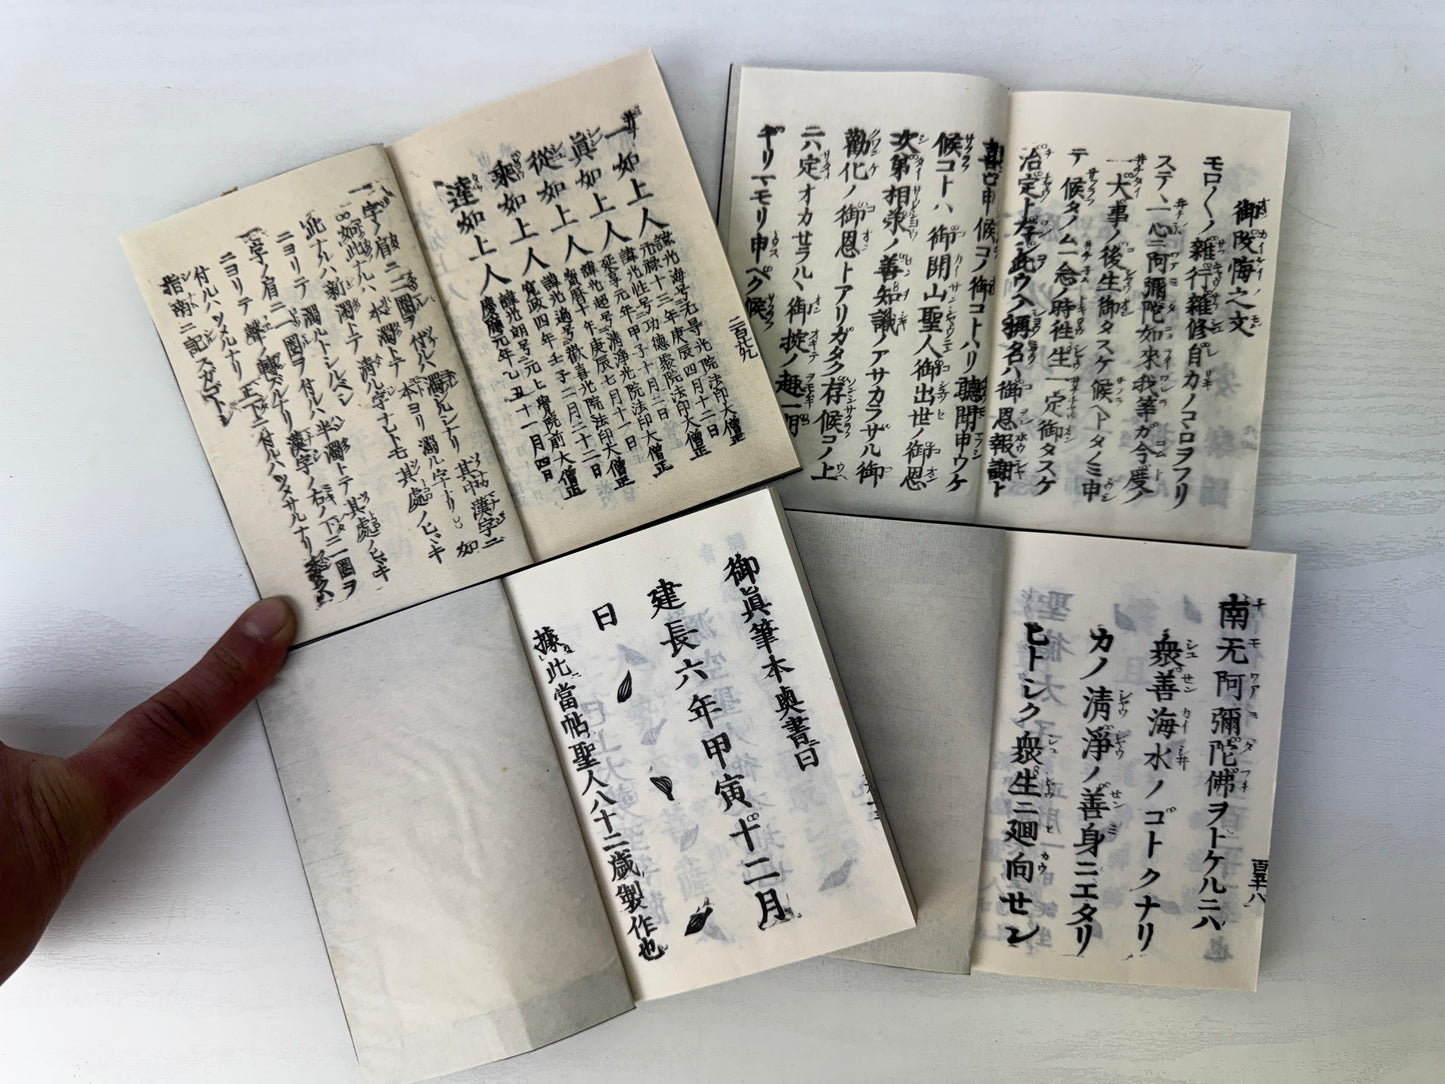 一如上人
諱光海号無导光院法印大僧正
元禄十三年庚辰四月十二日
眞如上人
諱光性号功德聚院法印大僧正
延享元年甲子十月二日
從如上人
諱光超号清淨光院法印大僧正
寳曆十年庚辰七月十一日
乘如上人
諱光遍号歡喜光院法印大僧正
寛政四年壬子二月二十二日
達如上人
諱光朗号無上覺院前大僧正
慶應元年乙丑十一月四日
一字ノ肩ニ二圈ヲ付ルハ濁ルシルシナリ其中漢字ニ
如此ナルハ本濁トテ本ヨリ濁ル字ナリ如
此ナルハ新濁トテ清ル字ナレトモ其處ノヒヾキ
ニヨリテ濁ルトシルヘシ
一字ノ肩ニ一圈ヲ付ルハ半濁トテ其處ノヒヾキ
ニヨリテ聲ノ轉スルナリ漢字ノ右ノ下ニ一圈ヲ
付ルハツメルナリ
指南ニ記スガゴトシ
御改悔之文
モロ〱ノ雜行雜修自力ノコヽロヲフリ
ステヽ一心ニ阿彌陀如來我等ガ今度ノ
一大事ノ後生御タスケ候ヘトタノミ申
テ候タノム一念ノ時往生一定御タスケ
治定ト存ジ此ウヘノ稱名ハ御恩報謝ト
喜ビ申候コノ御コトハリ聽聞申ワケ
候コトハ御開山聖人御出世ノ御恩
次第相承ノ善知識ノアサカラザル御
勸化ノ御恩トアリガタク存候コノ上
ハ定オカセラルヽ御掟ノ趣一期
ギリマモリ申ベク候
御眞筆本奥書曰
建長六年甲寅十二月
日
據此當帖聖人八十二歳製作也
南无阿彌陀佛ヲトケルニハ
衆善海水ノゴトクナリ
カノ清淨ノ善身ニエタリ
ヒトシク衆生ニ廻向せン
百五十八